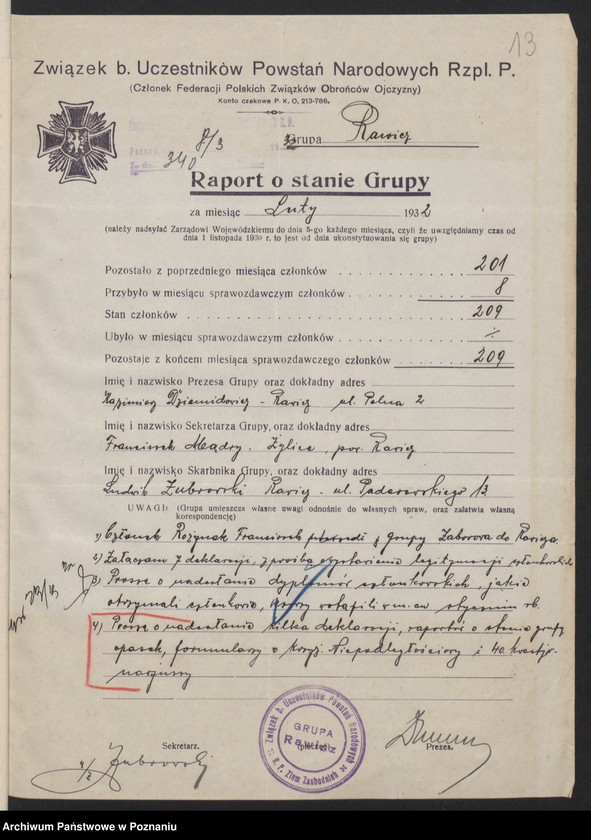 13
Związek b. Uczestników Powstań Narodowych Rzpl. P.
(Członek Federacji Polskich Związków Obrońców Ojczyzny)
Konto czekowe P. K. O. 213-786.
8/3
340
Grupa Rawicz
Raport o stanie Grupy
za miesiąc Luty 1932
(należy nadsyłać Zarządowi Wojewódzkiemu do dnia 5-go każdego miesiąca, czyli że uwzględniamy czas od
dnia 1 listopada 1930 r. to jest od dnia ukonstytuowania się grupy)
Pozostało z poprzedniego miesiąca członków 201
Przybyło w miesiącu sprawozdawczym członków 8
Stan członków 209
Ubyło w miesiącu sprawozdawczym członków ÷
Pozostaje z końcem miesiąca sprawozdawczego członków 209
Imię i nazwisko Prezesa Grupy oraz dokładny adres
Kazimierz Dziemidowicz - Rawicz ul. Polna 2
Imię i nazwisko Sekretarza Grupy, oraz dokładny adres
Franciszek Mądry. Żylice, pow. Rawicz
Imię i nazwisko Skarbnika Grupy, oraz dokładny adres
Ludwik Żubrowski Rawicz - ul. Paderewskiego 13.
UWAGI: (Grupa umieszcza własne uwagi odnośnie do własnych spraw, oraz załatwia własną
korespondencję)
1) Członek Rożynek Franciszek z grupy Zaborowa do Rawicza
2) Załączam 7 deklaracji, z prośbą legitymacji członkowskich
3) Proszę o nadesłanie dyplomów członkowskich jakie
otrzymali członkowie, którzy wstąpili w m-cu styczniu rb.
4) Proszę o nadesłanie kilka deklaracji, raportów o stanie grupy
opasek, formularzy o Krzyż Niepodległościowy i 40 kwestjo-
narjuszy
Sekretarz.
Żubrowski
Związek b. Uczestników Powstań Narodowych
GRUPA
Rawicz
(pieczęć)
R. P. Ziem Zachodnich
Prezes.
Archiwum Państwowe w Poznaniu